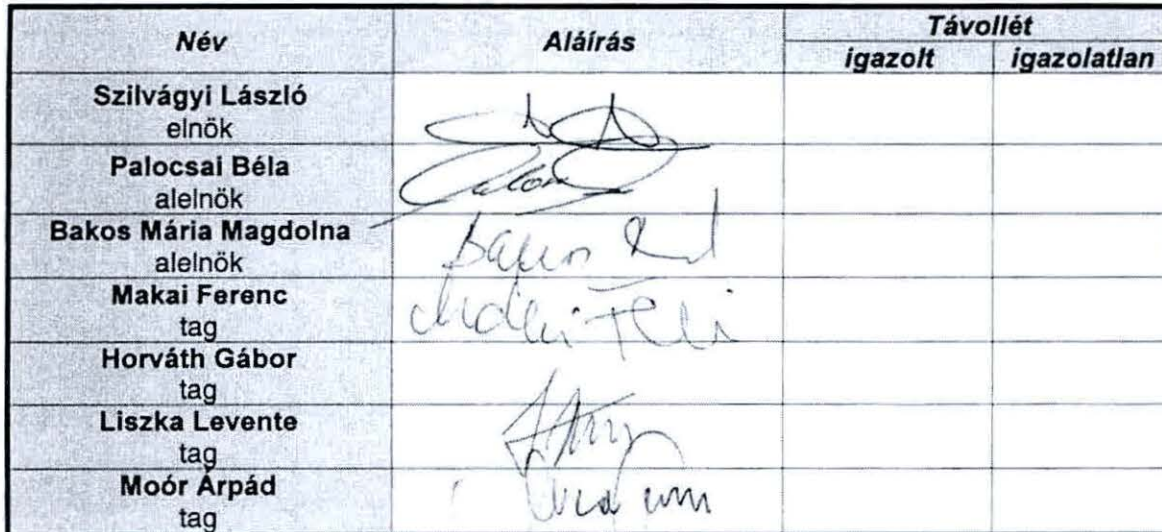 Név Aláírás Távollét
igazolt igazolatlan
Szilvágyi László
elnök
Palocsai Béla
alelnök
Bakos Mária Magdolna
alelnök
Makai Ferenc
tag
Horváth Gábor
tag
Liszka Levente
tag
Moór Árpád
tag